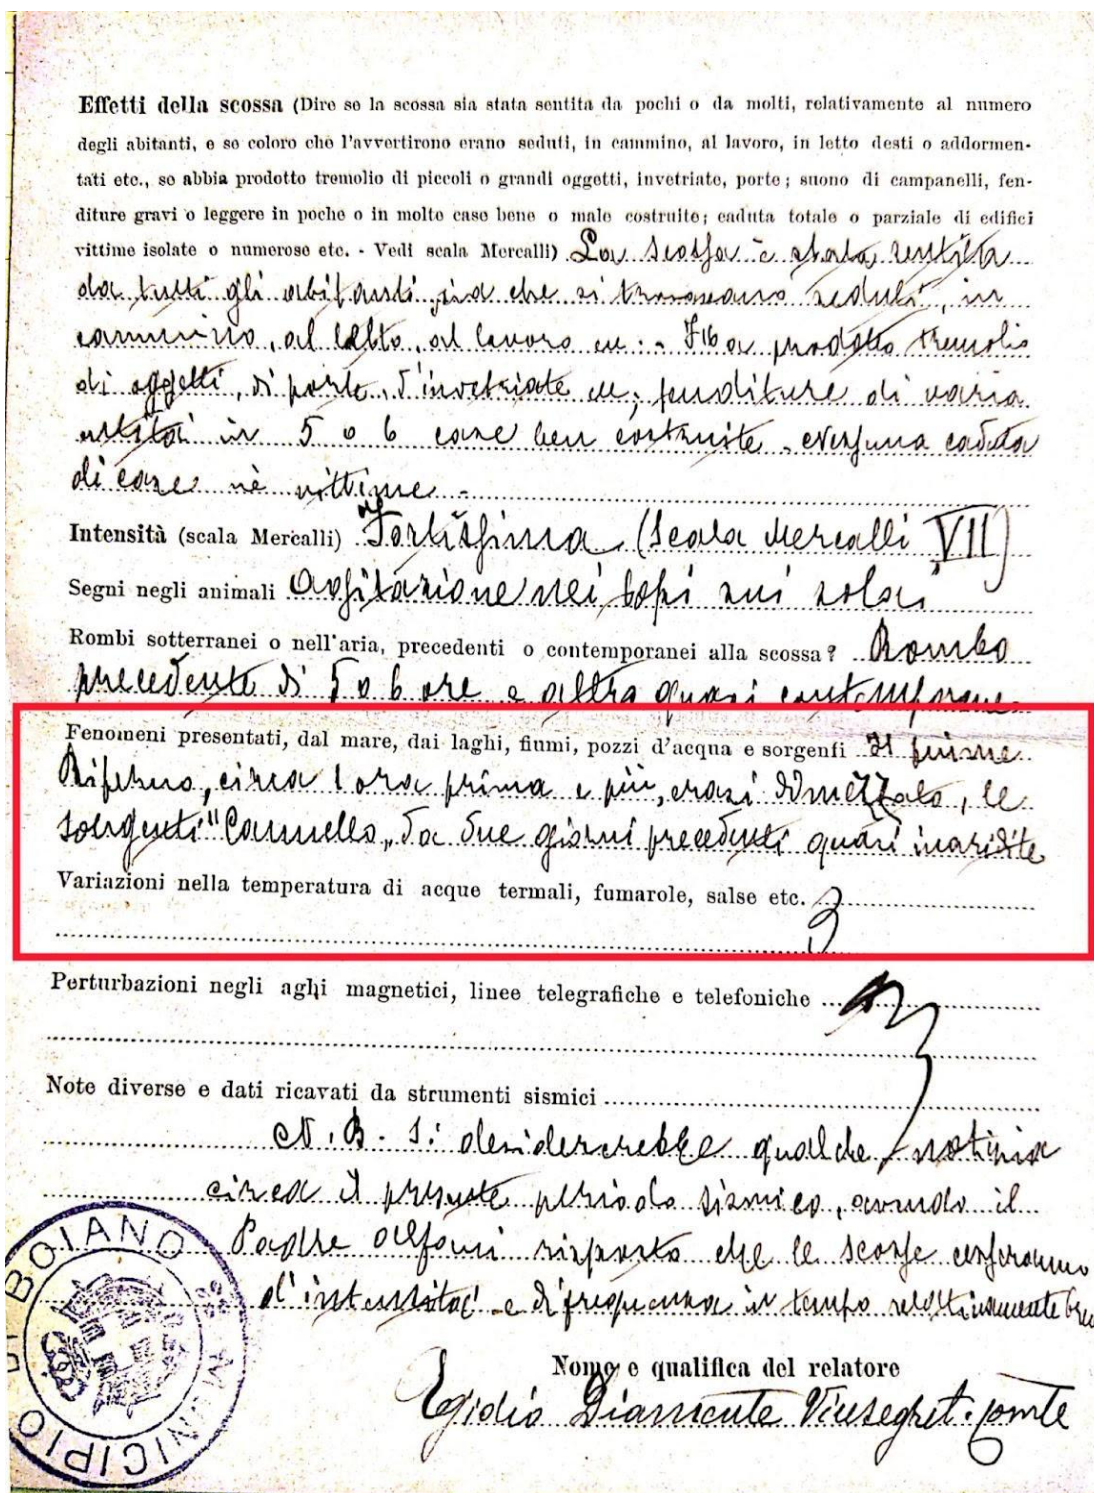 Effetti della scossa (Dire se la scossa sia stata sentita da pochi o da molti, relativamente al numero
degli abitanti, e se coloro che l'avvertirono erano seduti, in cammino, al lavoro, in letto desti o addormen-
tati etc., se abbia prodotto tremolio di piccoli o grandi oggetti, invetriate, porte; suono di campanelli, fen-
diture gravi o leggere in poche o in molte case bene o male costruite; caduta totale o parziale di edifici
vittime isolate o numerose etc. - Vedi scala Mercalli) La scossa è stata sentita
da tutti gli abitanti, sia che si trovassero seduti, in
cammino, al letto, al lavoro ecc. - Ha prodotto tremolio
di oggetti, di porte, d'invetriate ecc; fenditure di varia
entità in 5 o 6 case ben costruite. Nessuna caduta
di case nè vittime -
Intensità (scala Mercalli) Fortissima (Scala Mercalli VII)
Segni negli animali Agitazione nei topi sui solai
Rombi sotterranei o nell'aria, precedenti o contemporanei alla scossa? Rombo
precedente di 5 o 6 ore e altro quasi contemporaneo
Fenomeni presentati, dal mare, dai laghi, fiumi, pozzi d'acqua e sorgenti Il fiume
Biferno, circa 1 ora prima e più, erasi dimezzato, le
sorgenti "Cannello" da due giorni precedenti quasi inaridite
Variazioni nella temperatura di acque termali, fumarole, salse etc.
Perturbazioni negli aghi magnetici, linee telegrafiche e telefoniche
Note diverse e dati ricavati da strumenti sismici
N. B. Si desidererebbe qualche notizia
circa il presente periodo sismico, avendo il
Padre Alfani risposto che le scosse cesseranno
d'intensità e di frequenza in tempo relativamente breve
Nome e qualifica del relatore
Egidio Diamente Vicesegret. Comle
MUNICIPIO DI BOIANO